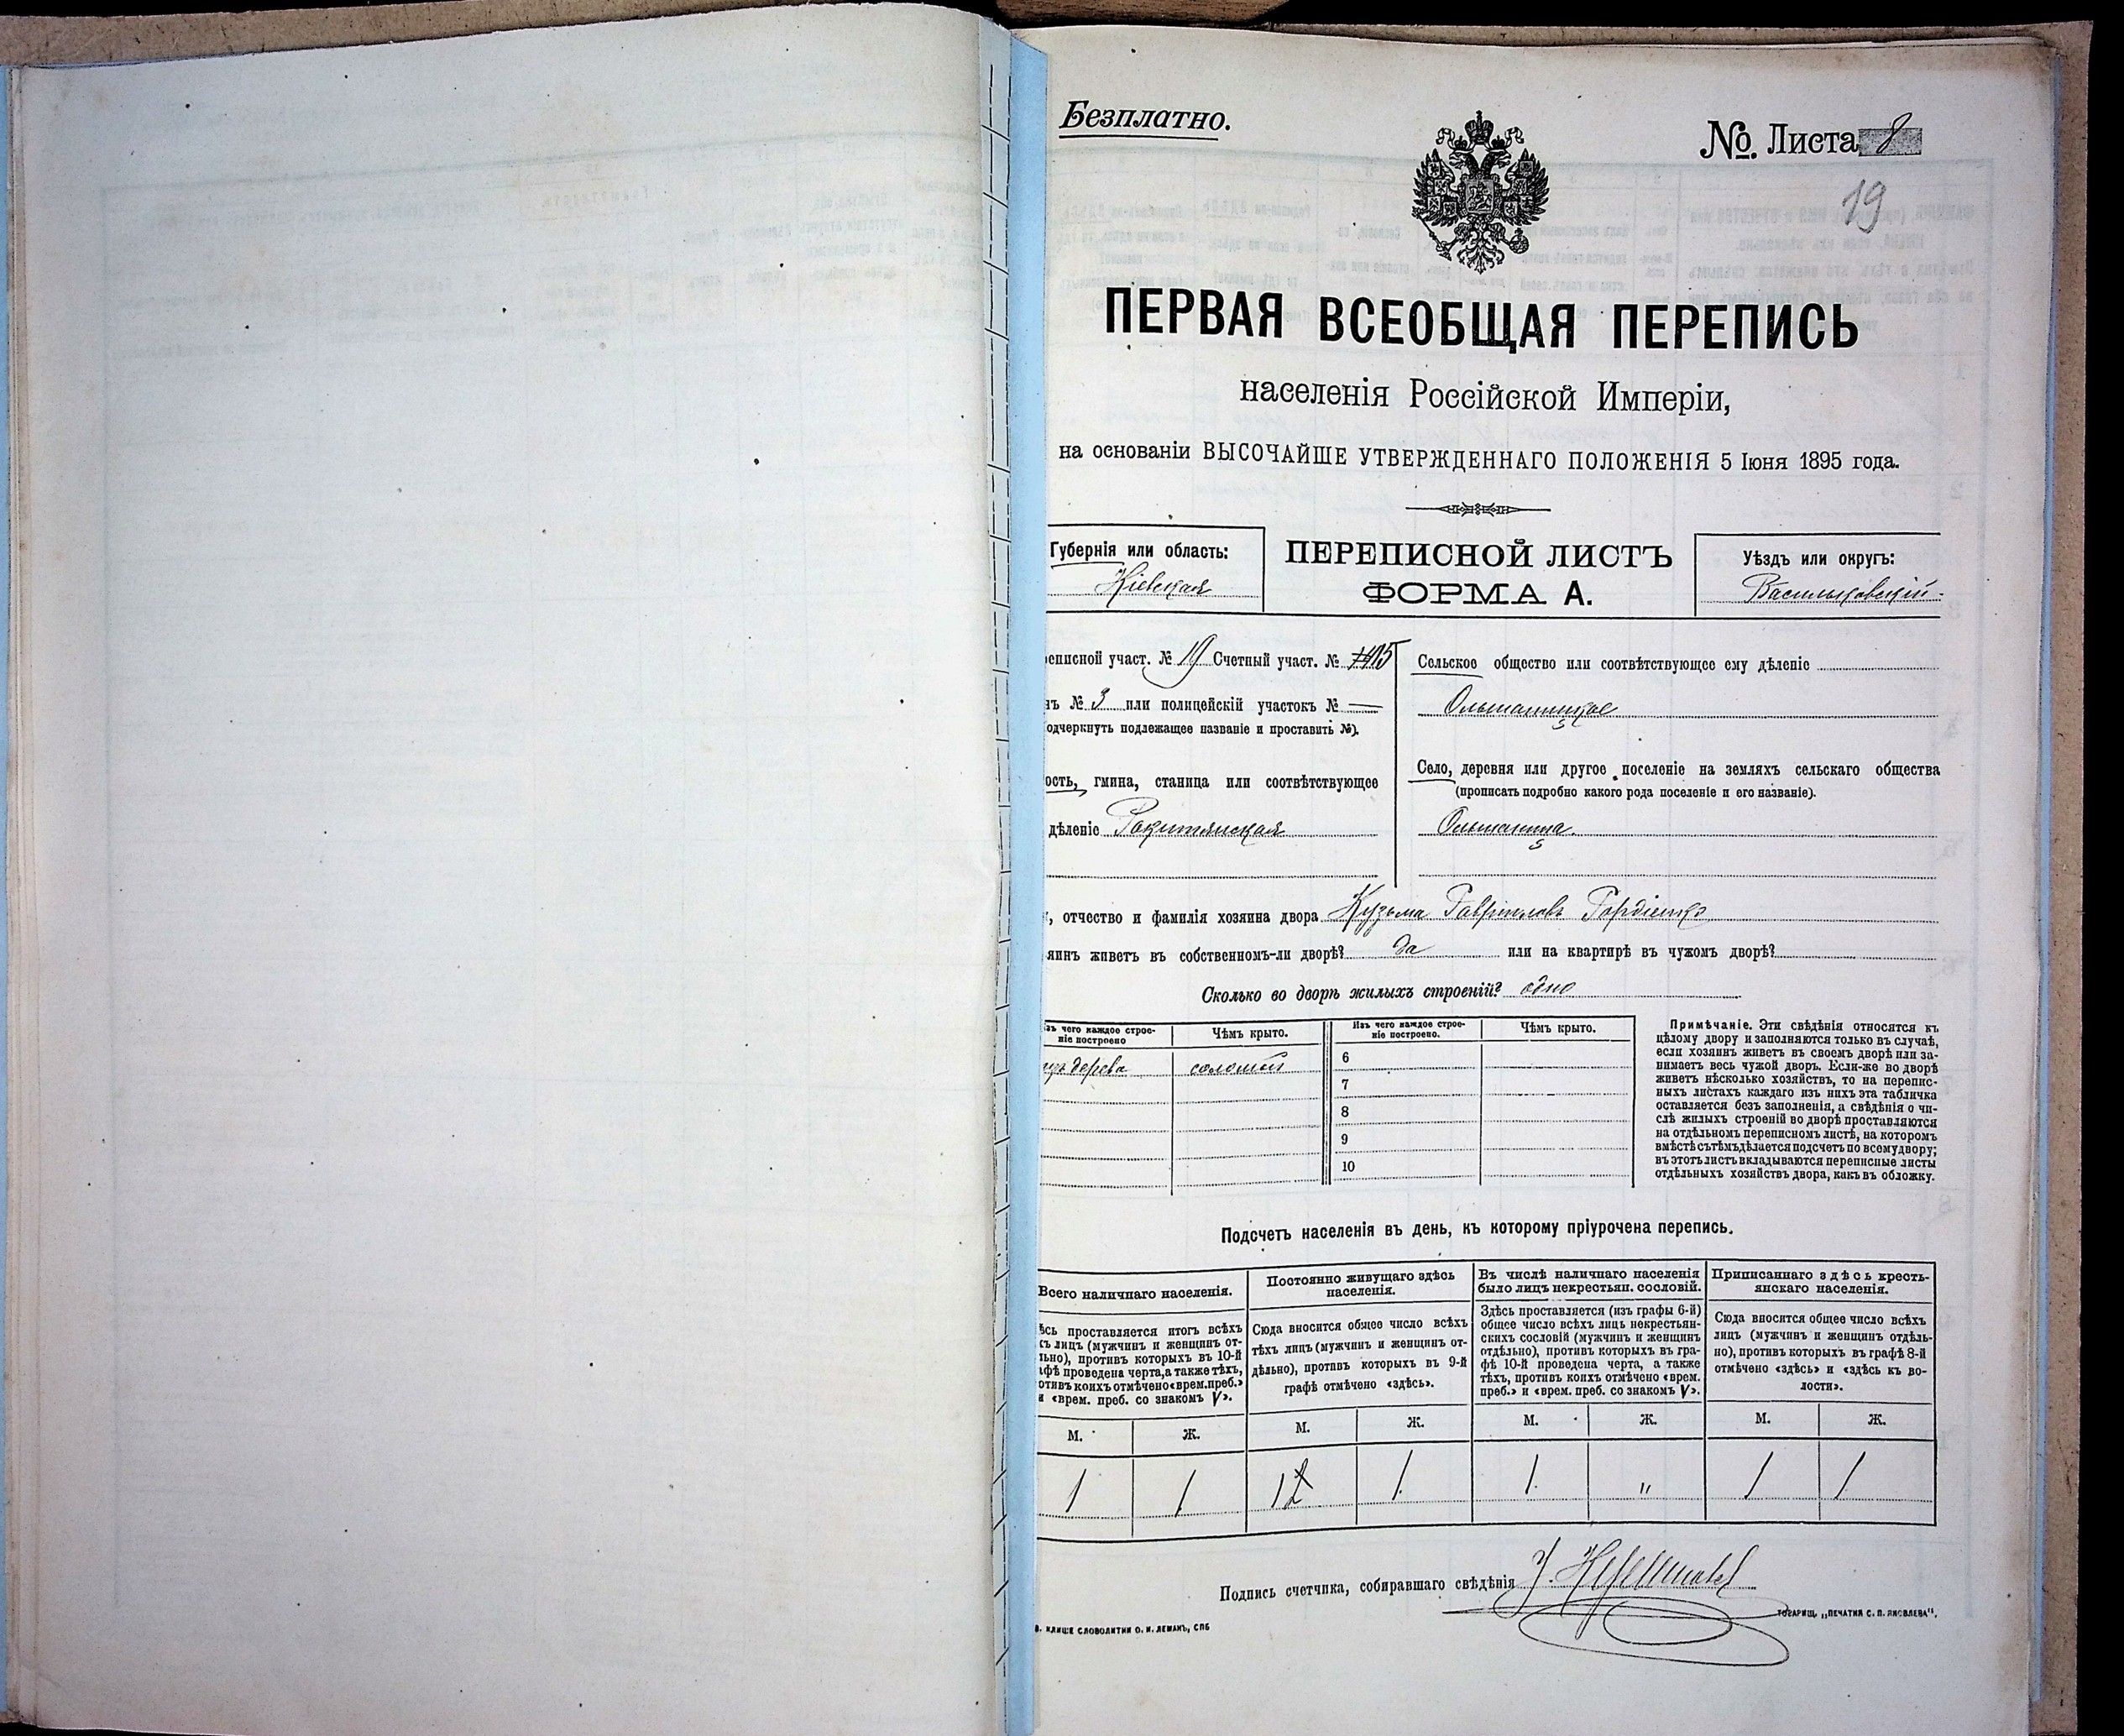 Безплатно.
№ Листа 8
19
ПЕРВАЯ ВСЕОБЩАЯ ПЕРЕПИСЬ
населенія Россійской Имперіи,
на основаніи ВЫСОЧАЙШЕ УТВЕРЖДЕННАГО ПОЛОЖЕНІЯ 5 Іюня 1895 года.
Губернія или область:
Кіевская
ПЕРЕПИСНОЙ ЛИСТЪ
ФОРМА А.
Уѣздъ или округъ:
Васильковскій
еписной участ. № 19 Счетный участ. №
нъ № 3 или полицейскій участокъ № —
одчеркнуть подлежащее названіе и проставить №).
ость, гмина, станица или соотвѣтствующее
дѣленіе Рокитянская
Сельское общество или соотвѣтствующее ему дѣленіе
Ольшаницкое
Село, деревня или другое поселеніе на земляхъ сельскаго общества
(прописать подробно какого рода поселеніе и его названіе).
Ольшаница
, отчество и фамилія хозяина двора Кузьма Гавріиловъ Гордіенко
яинъ живетъ въ собственномъ-ли дворѣ? да или на квартирѣ въ чужомъ дворѣ?
Сколько во дворѣ жилыхъ строеній? одно
зъ чего каждое строе-
ніе построено
Чѣмъ крыто.
Изъ чего каждое строе-
ніе построено.
Чѣмъ крыто.
изъ дерева
соломой
6
7
8
9
10
Примѣчаніе. Эти свѣдѣнія относятся къ
цѣлому двору и заполняются только въ случаѣ,
если хозяинъ живетъ въ своемъ дворѣ или за-
нимаетъ весь чужой дворъ. Если-же во дворѣ
живетъ нѣсколько хозяйствъ, то на перепис-
ныхъ листахъ каждаго изъ нихъ эта табличка
оставляется безъ заполненія, а свѣдѣнія о чи-
слѣ жилыхъ строеній во дворѣ проставляются
на отдѣльномъ переписномъ листѣ, на которомъ
вмѣстѣ съ тѣмъ дѣлается подсчетъ по всему двору;
въ этотъ листъ вкладываются переписные листы
отдѣльныхъ хозяйствъ двора, какъ въ обложку.
Подсчетъ населенія въ день, къ которому пріурочена перепись.
Всего наличнаго населенія.
ѣсь проставляется итогъ всѣхъ
хъ лицъ (мужчинъ и женщинъ от-
льно), противъ которыхъ въ 10-й
афѣ проведена черта, а также тѣхъ,
отивъ коихъ отмѣчено «врем. преб.»
и «врем. преб. со знакомъ V».
Постоянно живущаго здѣсь
населенія.
Сюда вносится общее число всѣхъ
тѣхъ лицъ (мужчинъ и женщинъ от-
дѣльно), противъ которыхъ въ 9-й
графѣ отмѣчено «здѣсь».
Въ числѣ наличнаго населенія
было лицъ некрестьян. сословій.
Здѣсь проставляется (изъ графы 6-й)
общее число всѣхъ лицъ некрестьян-
скихъ сословій (мужчинъ и женщинъ
отдѣльно), противъ которыхъ въ гра-
фѣ 10-й проведена черта, а также
тѣхъ, противъ коихъ отмѣчено «врем.
преб.» и «врем. преб. со знакомъ V».
Приписаннаго здѣсь кресть-
янскаго населенія.
Сюда вносится общее число всѣхъ
лицъ (мужчинъ и женщинъ отдѣль-
но), противъ которыхъ въ графѣ 8-й
отмѣчено «здѣсь» и «здѣсь къ во-
лости».
М. Ж. М. Ж. М. Ж. М. Ж.
1 1 1 1 1 " 1 1
Подпись счетчика, собиравшаго свѣдѣнія
В. КЛИШЕ СЛОВОЛИТНИ О. И. ЛЕМАНЪ, СПБ
ТОВАРИЩ. „ПЕЧАТНЯ С. П. ЯКОВЛЕВА“.